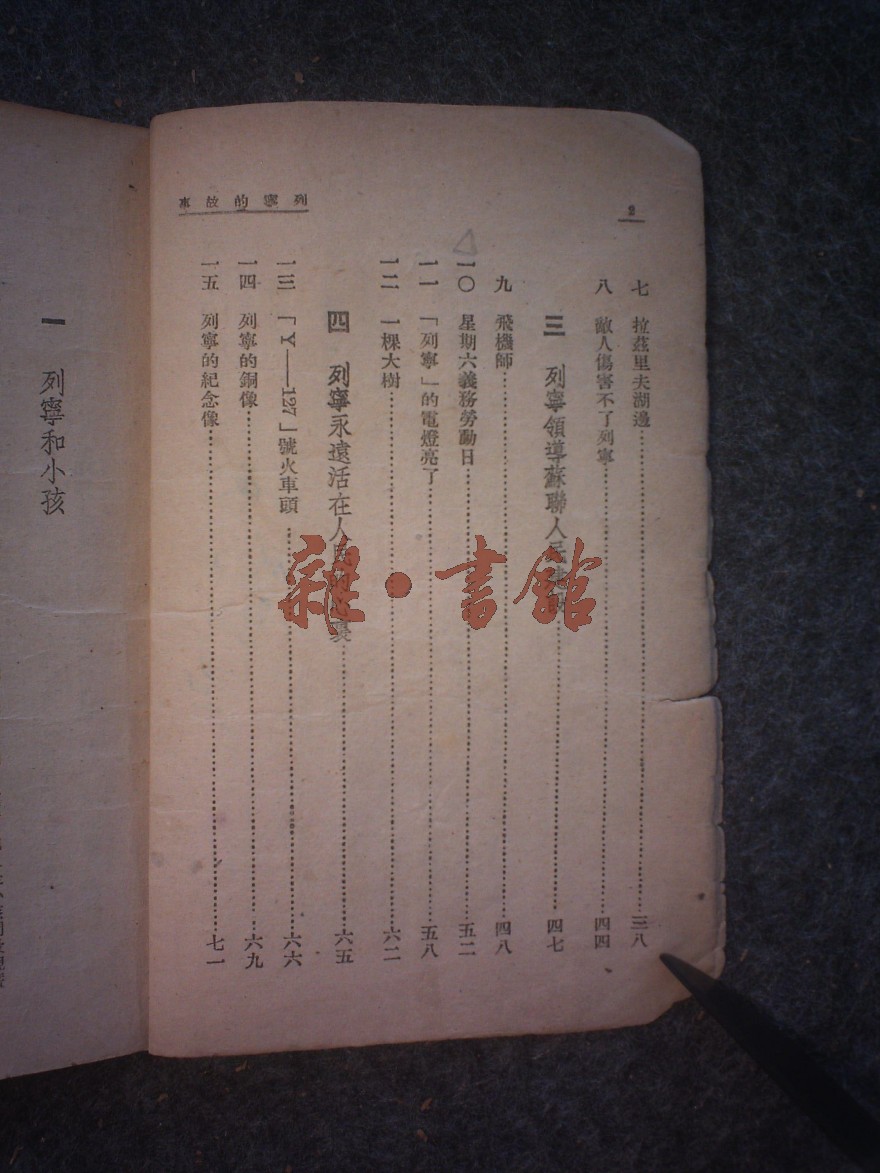 2
列寧的故事
七 拉茲里夫湖邊……三八
八 敵人傷害不了列寧……四四
三 列寧領導蘇聯人民……四七
九 飛機師……四八
一〇 星期六義務勞動日……五二
一一 「列寧」的電燈亮了……五八
一二 一棵大樹……六二
四 列寧永遠活在人民的心裏……六五
一三 「Y——127」號火車頭……六六
一四 列寧的銅像……六九
一五 列寧的紀念像……七一
一 列寧和小孩
雜·書館